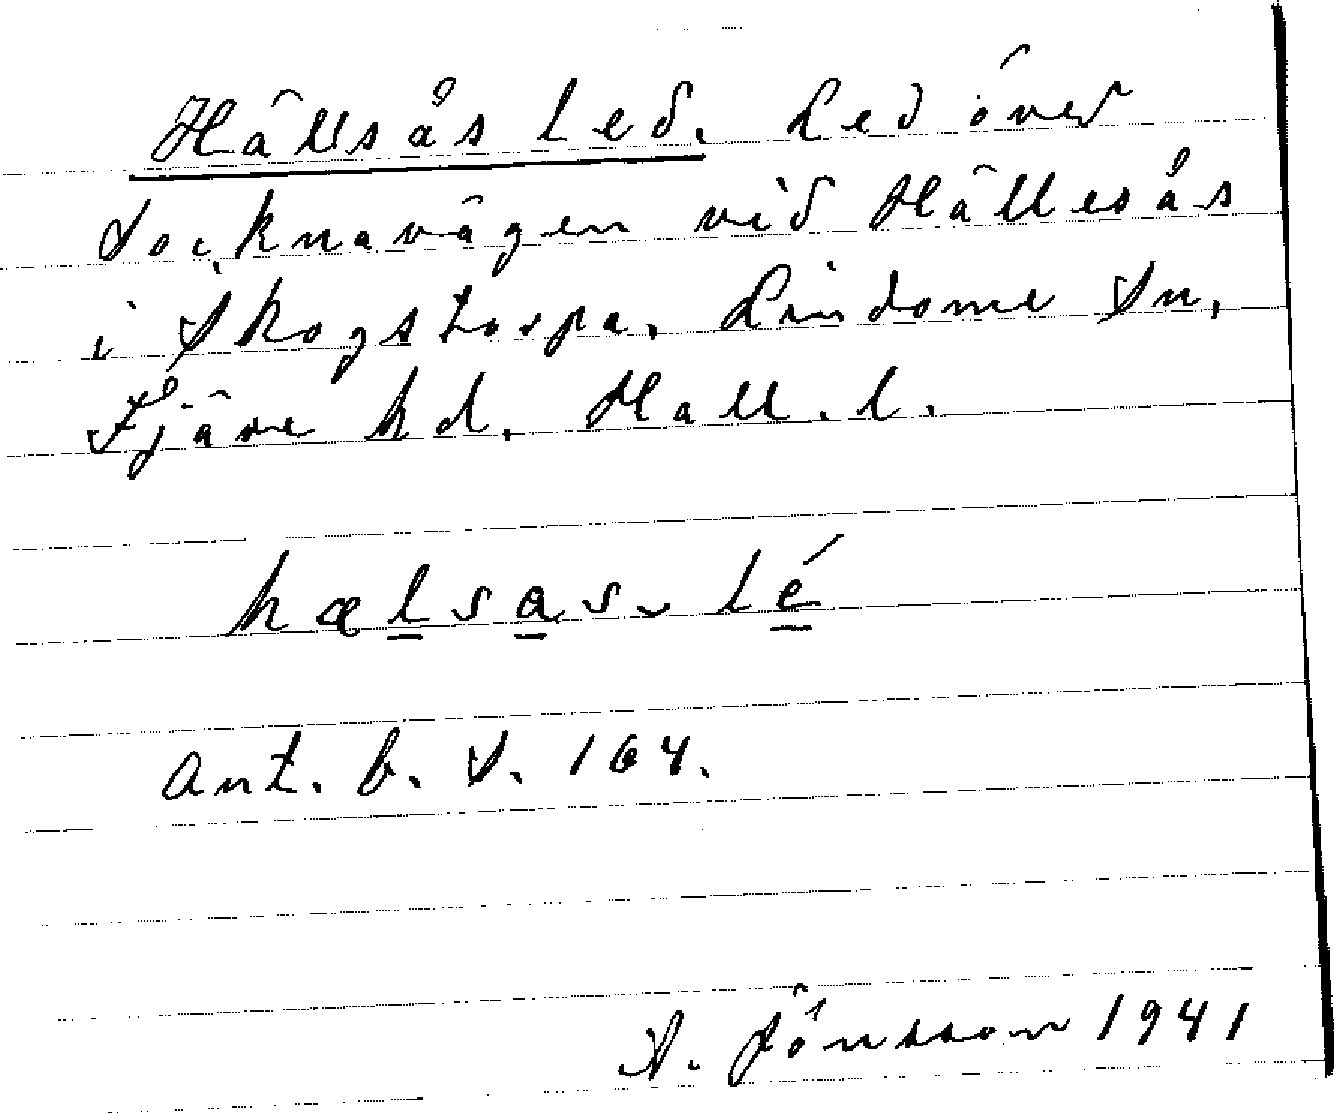 Hällsås led. Led över
Socknavägen vid Hällesås
i Skogstorpa. Lindome Sn,
Fjäre hd. Hall. l.
hælsas. lé
Ant. b. S. 164.
A. Jönsson 1941